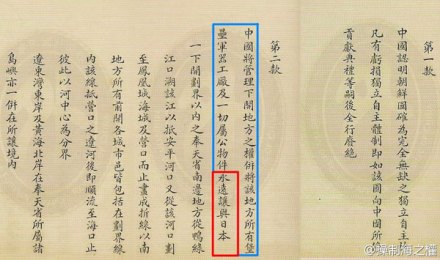 第一款
中國認明朝鮮國確為完全無缺之獨立自主
凡有虧損獨立自主體制即如該國向中國所修
貢獻典禮等嗣後全行廢絕
第二款
中國將管理下開地方之權併將該地方所有堡
壘軍器工廠及一切屬公物件永遠讓與日本
一下開劃界以內之奉天省南邊地方從鴨綠
江口溯該江以抵安平河口又從該河口劃
至鳳凰城海城及營口而止畫成折線以南
地方所有前開各城市邑皆包括在劃界線
內該線抵營口之遼河後即順流至海口止
彼此以河中心為分界
遼東灣東岸及黃海北岸在奉天省所屬諸
島嶼亦一併在所讓境內
制海之權